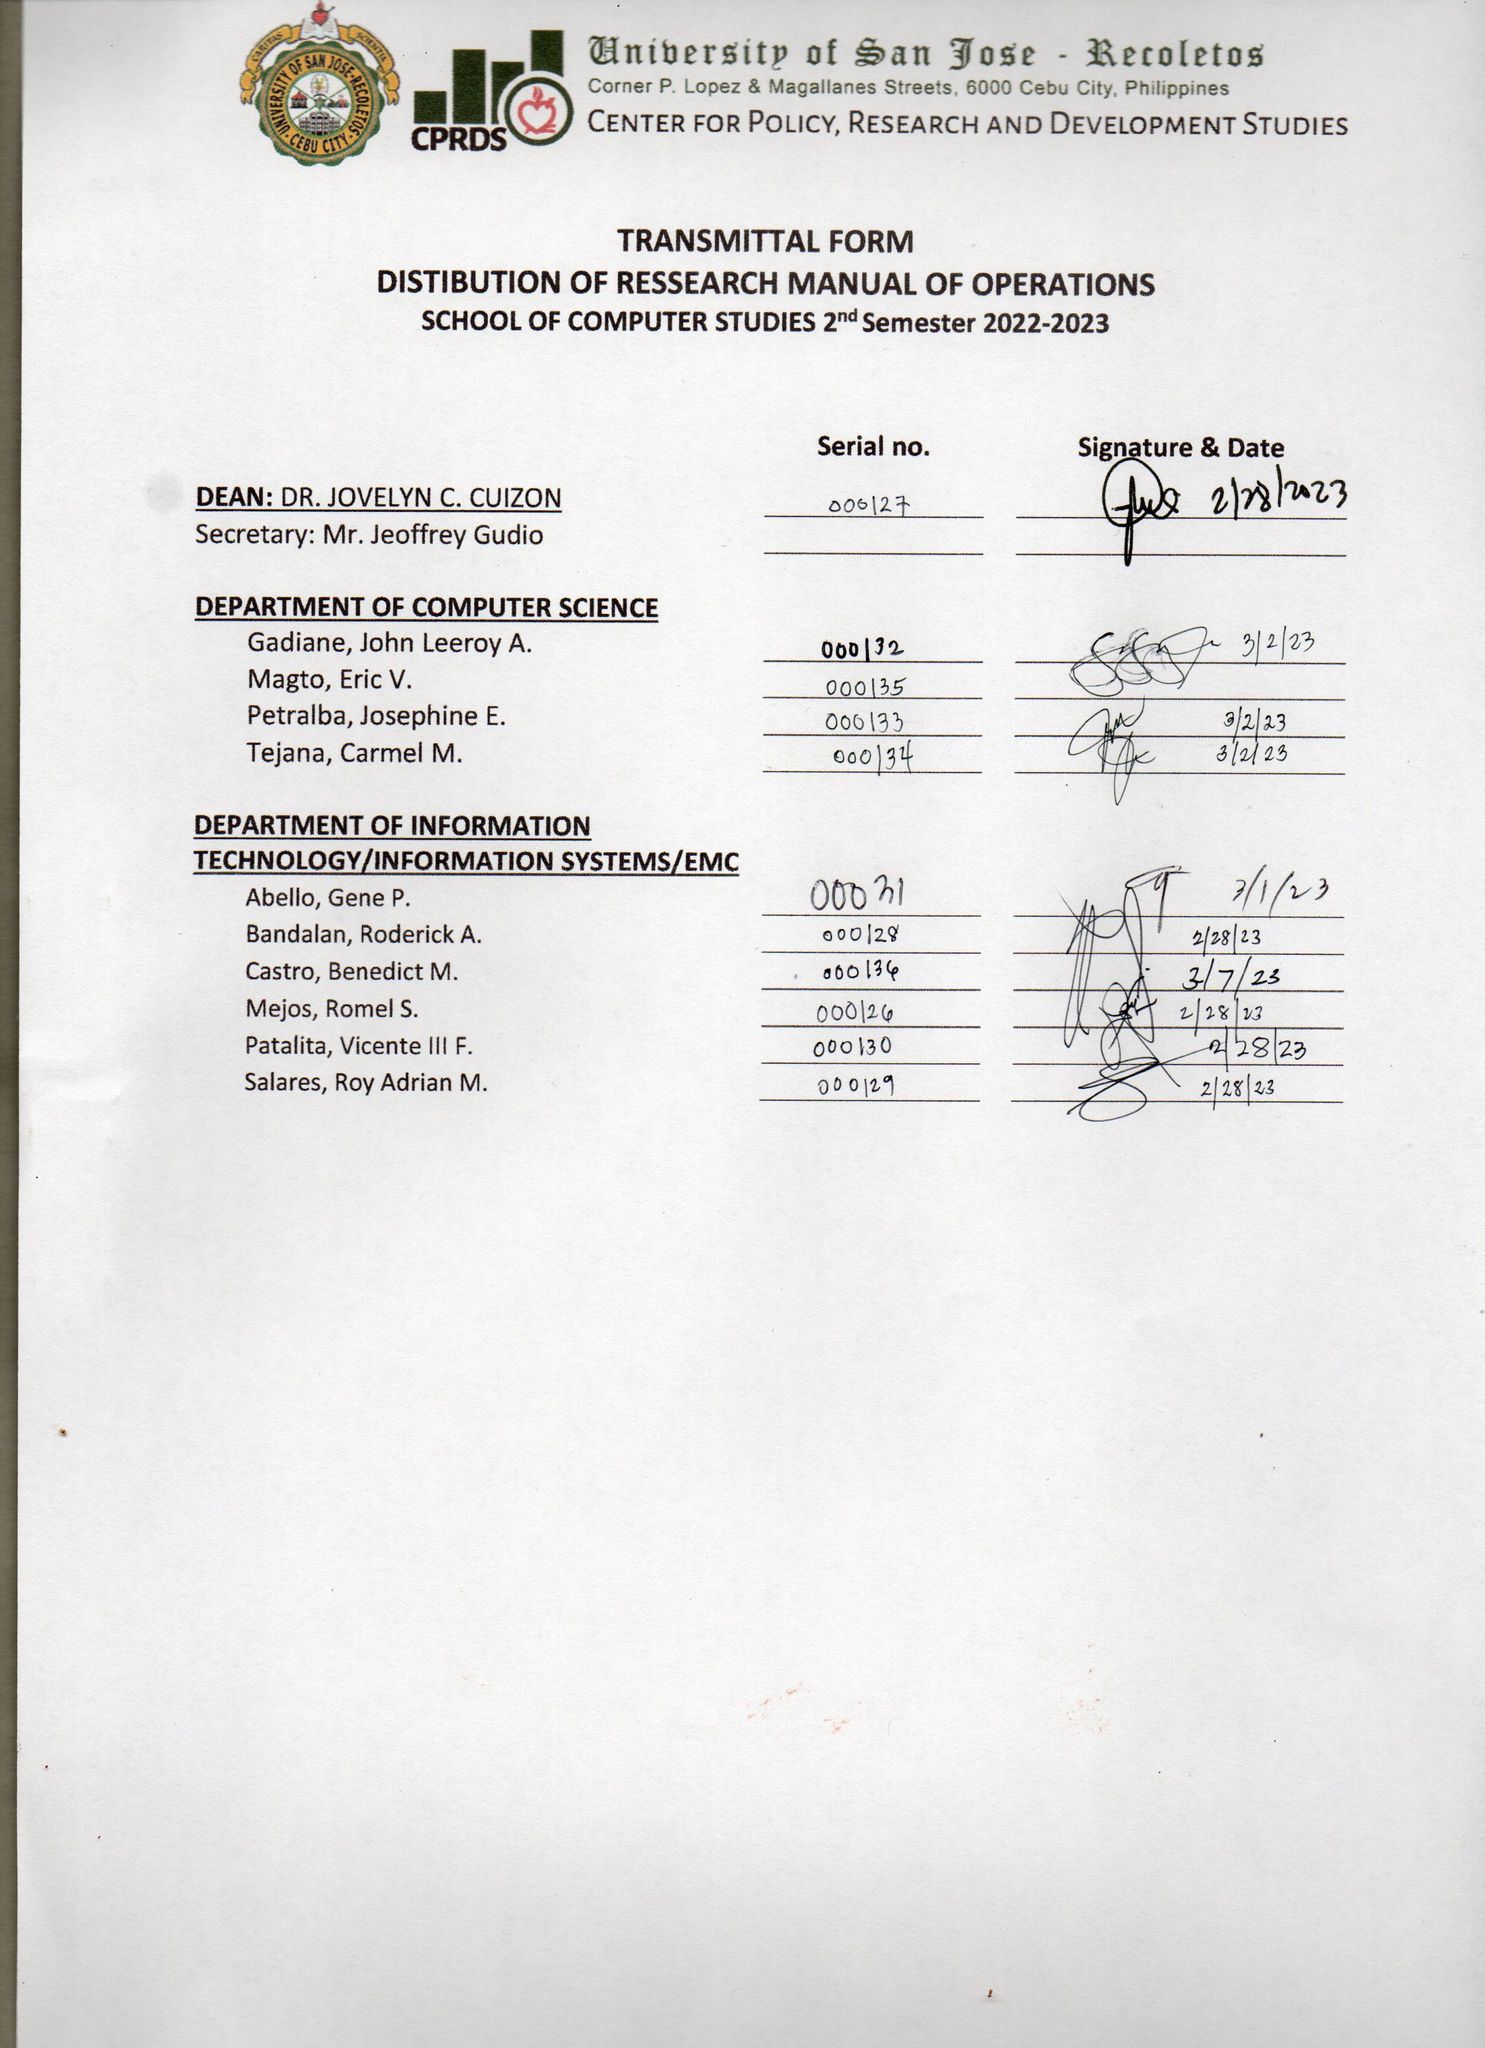 CARITAS SCIENTIA
UNIVERSITY OF SAN JOSE-RECOLETOS
CEBU CITY
CPRDS
University of San Jose - Recoletos
Corner P. Lopez & Magallanes Streets, 6000 Cebu City, Philippines
CENTER FOR POLICY, RESEARCH AND DEVELOPMENT STUDIES
TRANSMITTAL FORM
DISTIBUTION OF RESSEARCH MANUAL OF OPERATIONS
SCHOOL OF COMPUTER STUDIES 2nd Semester 2022-2023
Serial no. Signature & Date
DEAN: DR. JOVELYN C. CUIZON 000127 2/28/2023
Secretary: Mr. Jeoffrey Gudio
DEPARTMENT OF COMPUTER SCIENCE
Gadiane, John Leeroy A. 000132 3/2/23
Magto, Eric V. 000135
Petralba, Josephine E. 000133 3/2/23
Tejana, Carmel M. 000134 3/2/23
DEPARTMENT OF INFORMATION
TECHNOLOGY/INFORMATION SYSTEMS/EMC
Abello, Gene P. 00031 3/1/23
Bandalan, Roderick A. 000128 2/28/23
Castro, Benedict M. 000136 3/7/23
Mejos, Romel S. 000126 2/28/23
Patalita, Vicente III F. 000130 2/28/23
Salares, Roy Adrian M. 000129 2/28/23